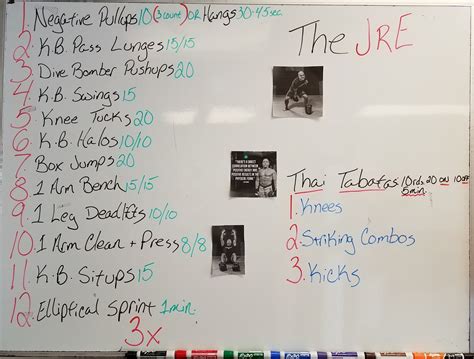 The JRE
1. Negative Pullups 10 (3 count) OR Hangs 30-45 sec.
2. K.B. Pass Lunges 15/15
3. Dive Bomber Pushups 20
4. K.B. Swings 15
5. Knee Tucks 20
6. K.B. Halos 10/10
7. Box Jumps 20
8. 1 Arm Bench 15/15
9. 1 Leg Deadlifts 10/10
10. 1 Arm Clean + Press 8/8
11. K.B. Situps 15
12. Elliptical Sprint 1 min.
3x
Thai Tabatas 10rds 20 on 10 off
5min.
1. Knees
2. Striking Combos
3. Kicks
"THERE'S A DIRECT
CORRELATION BETWEEN
POSITIVE ENERGY AND
POSITIVE RESULTS IN THE
PHYSICAL FORM."
EXPO
EXPO
EXPO
EXPO